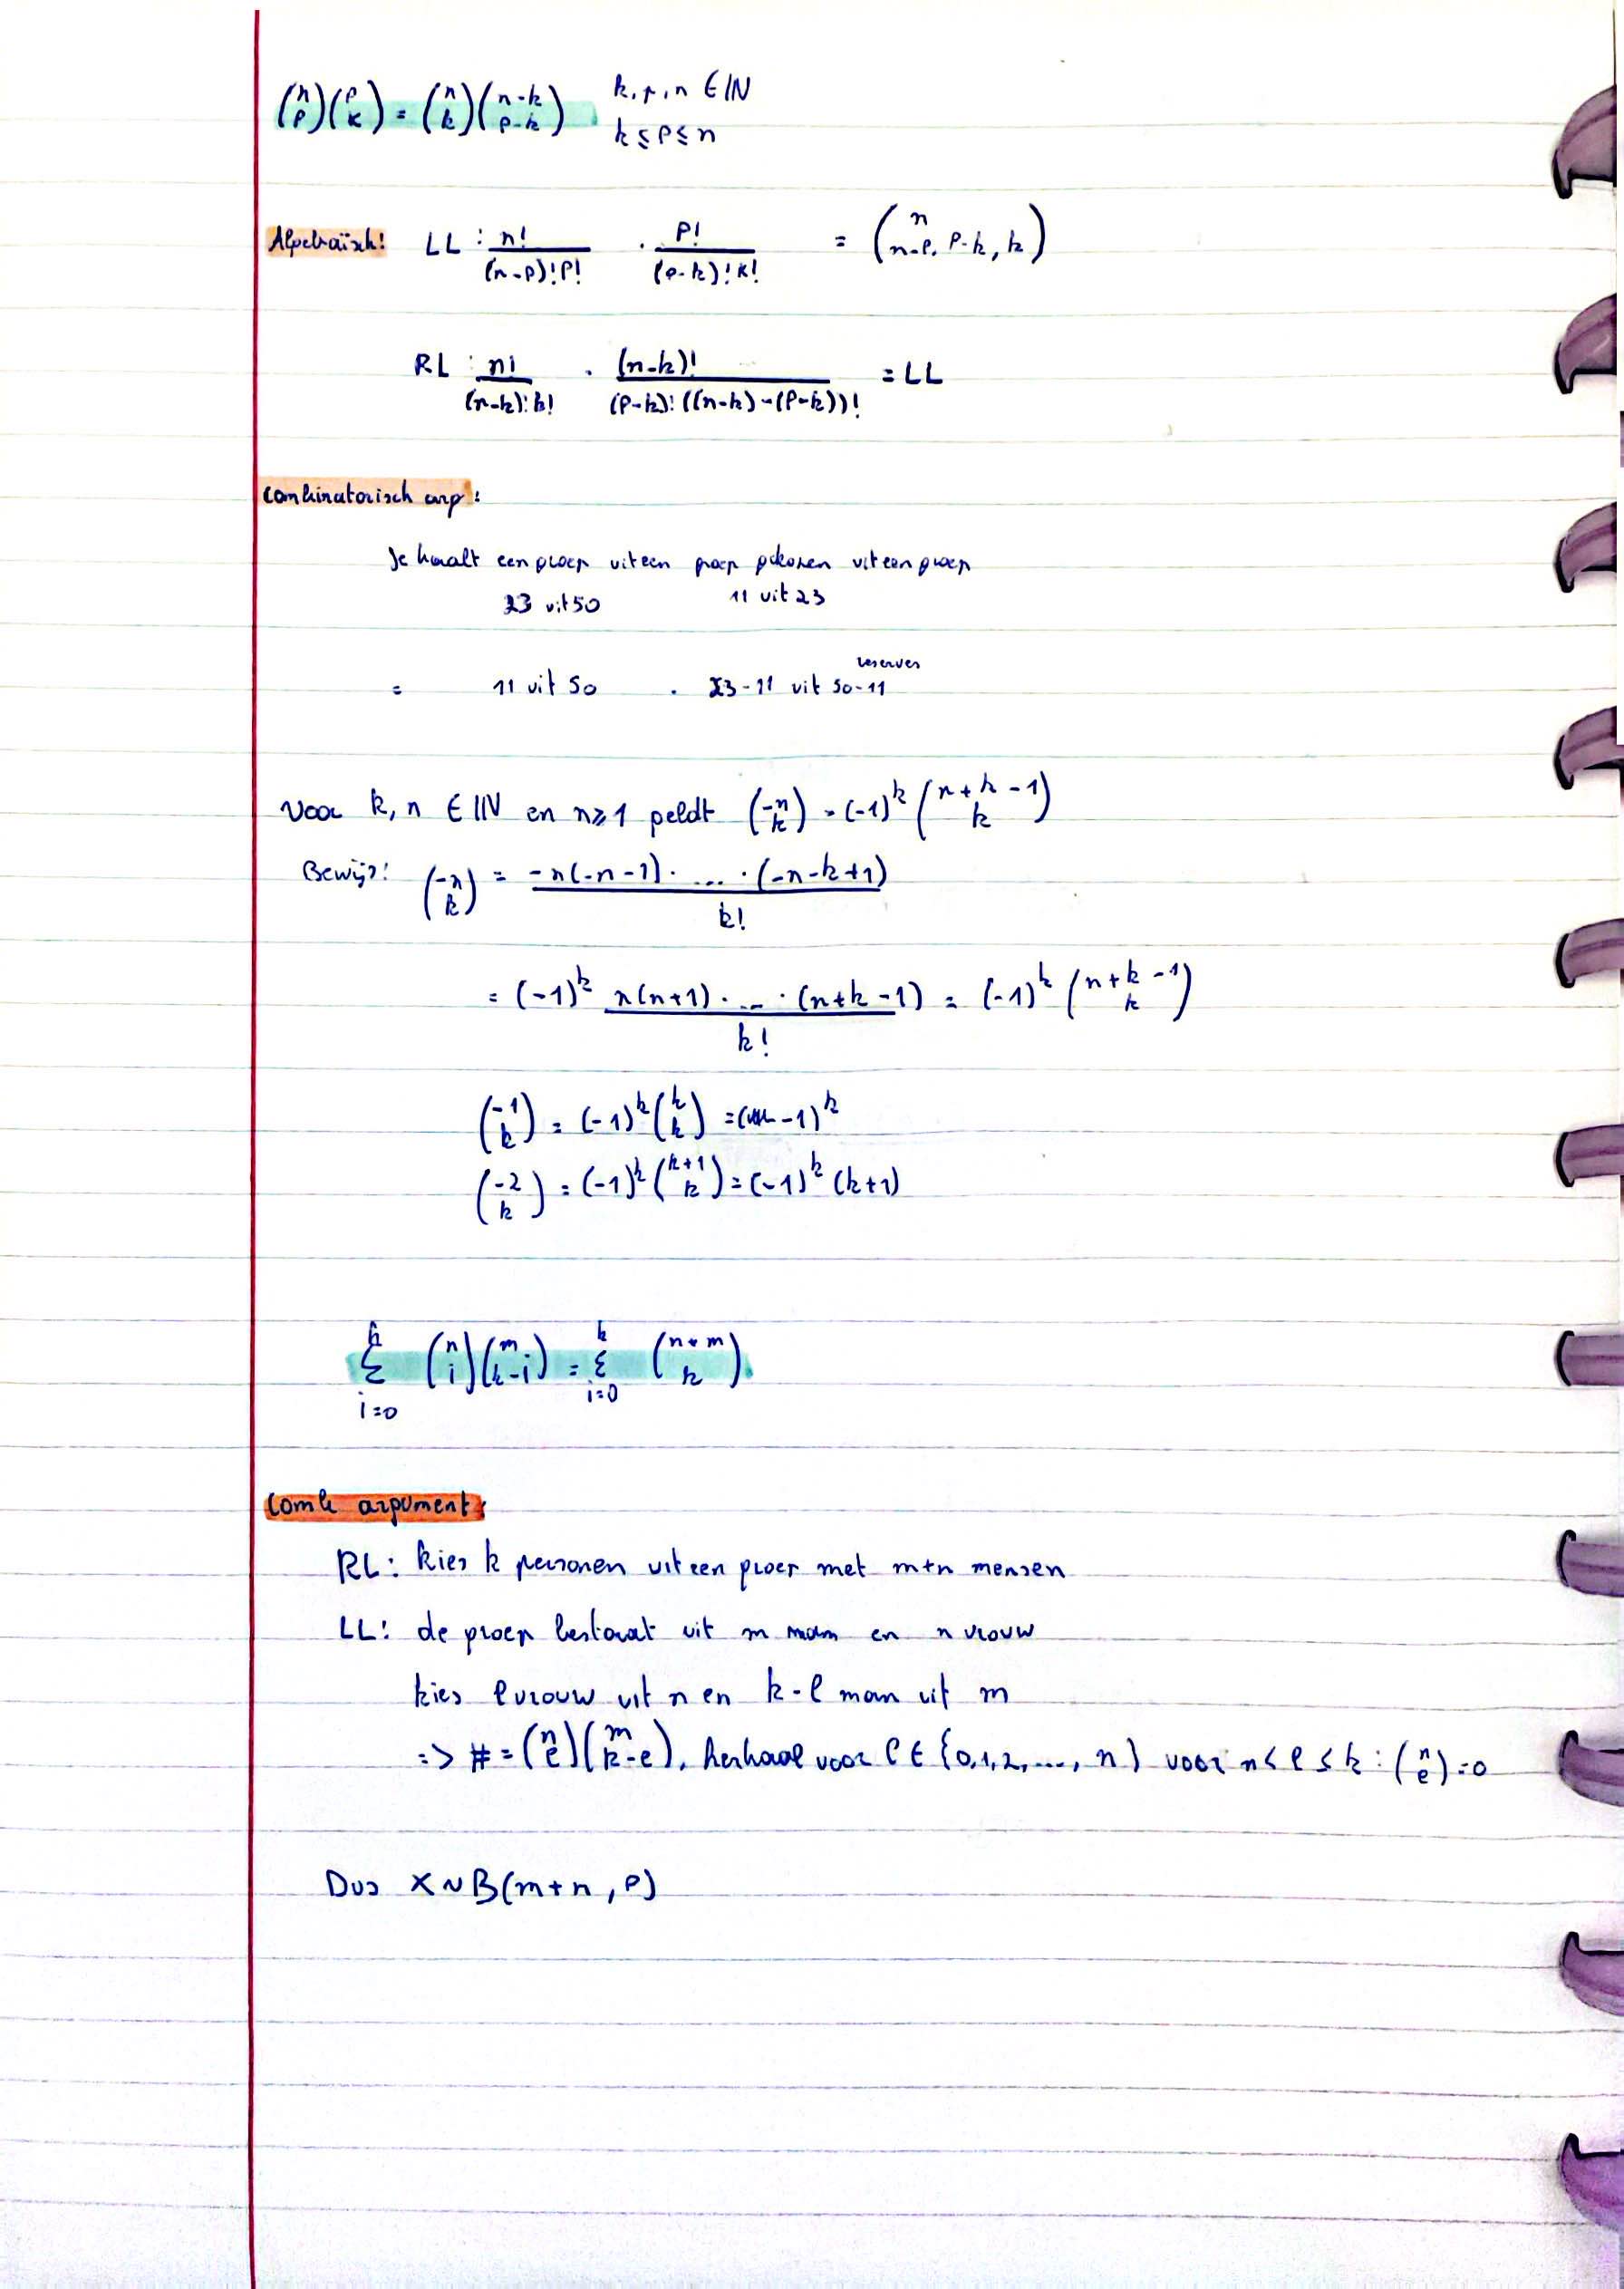 (n p)(p k) = (n k)(n-k p-k)   k, p, n ∈ ℕ
k ≤ p ≤ n
Algebraïsch: LL : n! / (n-p)!p! · p! / (p-k)!k! = (n n-p, p-k, k)
RL : n! / (n-k)!k! · (n-k)! / (p-k)!((n-k)-(p-k))! = LL
Combinatorisch arg:
Je haalt een groep uit een groep gekozen uit een groep
23 uit 50   11 uit 23
reserves
= 11 uit 50 · 23-11 uit 50-11
Voor k, n ∈ ℕ en n ≥ 1 geldt (-n k) = (-1)^k (n+k-1 k)
Bewijs: (-n k) = -n(-n-1)· ... ·(-n-k+1) / k!
= (-1)^k n(n+1)· ... ·(n+k-1) / k! = (-1)^k (n+k-1 k)
(-1 k) = (-1)^k (k k) = (-1)^k
(-2 k) = (-1)^k (k+1 k) = (-1)^k (k+1)
k Σ i=0 (n i)(m k-i) = k Σ i=0 (n+m k)
Comb argument:
RL: kies k personen uit een groep met m+n mensen
LL: de groep bestaat uit m man en n vrouw
kies l vrouw uit n en k-l man uit m
=> # = (n l)(m k-l), herhaal voor l ∈ {0,1,2,...,n} voor n < l ≤ k : (n l) = 0
Dus X ~ B(m+n, p)